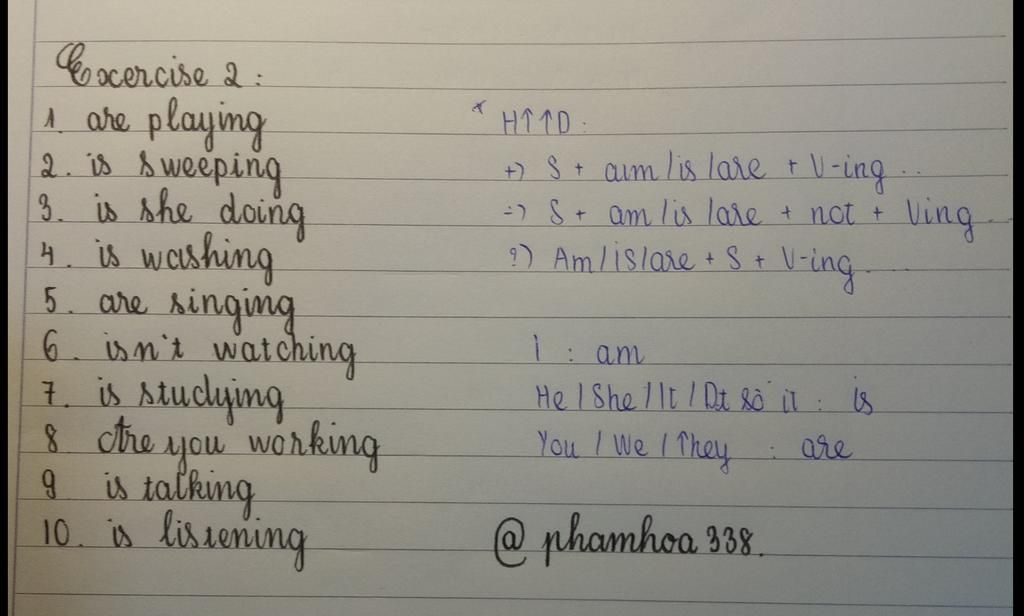 Exercise 2 :
1. are playing
2. is sweeping
3. is she doing
4. is washing
5. are singing
6. isn't watching
7. is studying
8 Are you working
9 is talking
10. is listening
* H↑↑D :
+) S + am / is / are + V-ing ..
-) S + am / is / are + not + Ving .
?) Am / is / are + S + V-ing .
I : am
He / She / It / Dt số ít : is
You / We / They : are
@ phamhoa 338.